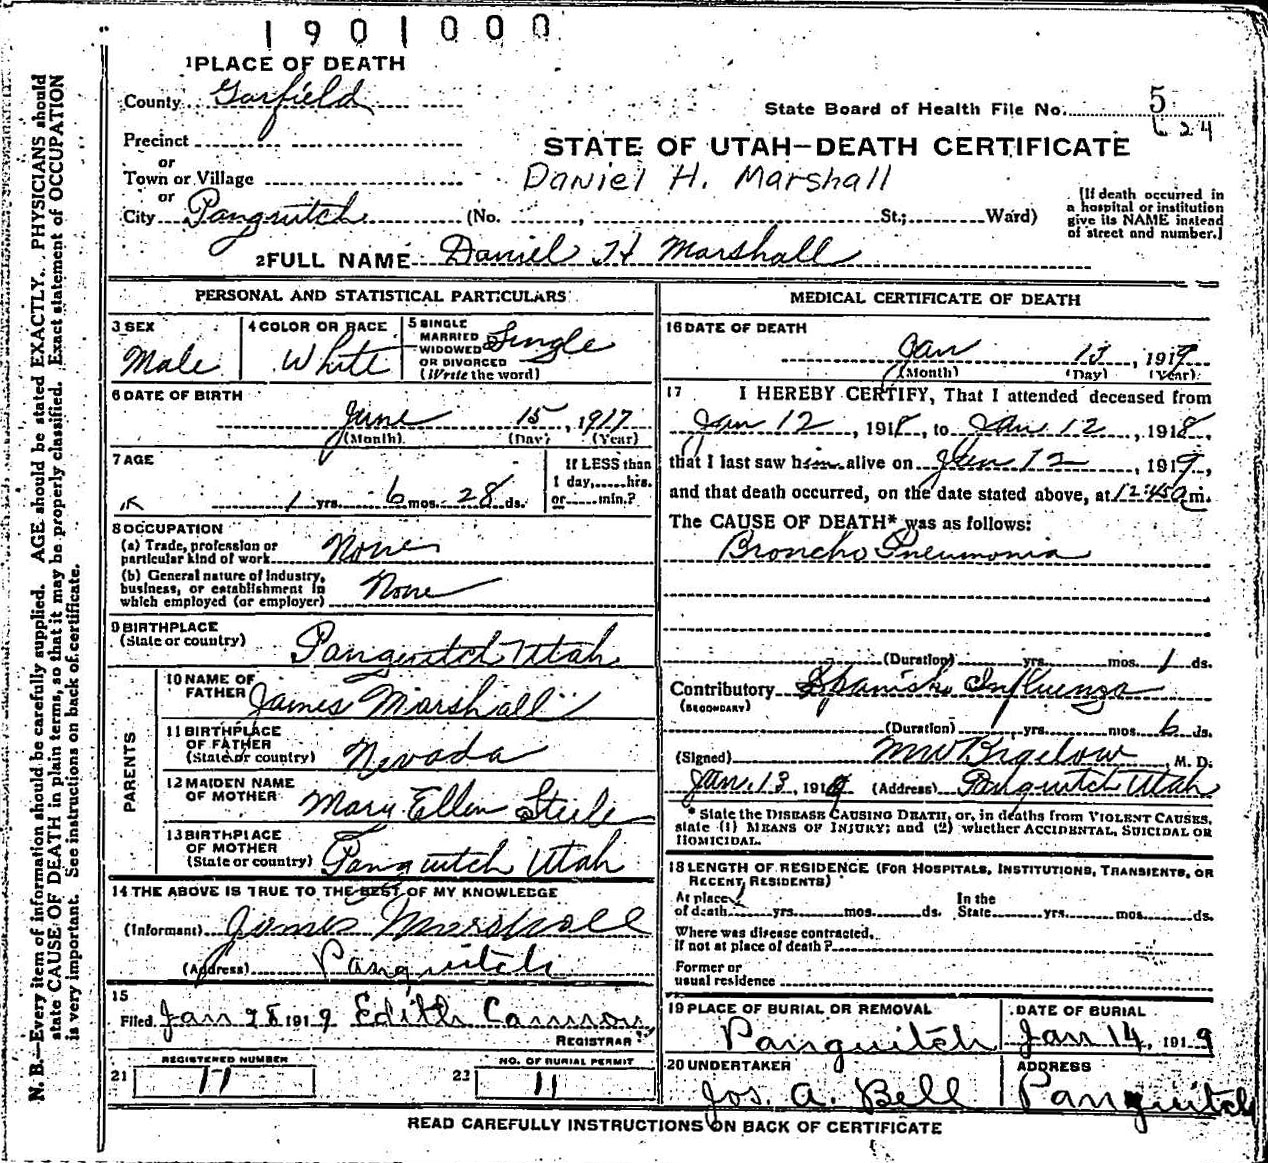 1901000
1 PLACE OF DEATH
County Garfield
State Board of Health File No. 5
624
Precinct
or
Town or Village
or
City Panguitch (No. , St.; Ward)
STATE OF UTAH—DEATH CERTIFICATE
Daniel H. Marshall
[If death occurred in
a hospital or institution
give its NAME instead
of street and number.]
2 FULL NAME Daniel H Marshall
PERSONAL AND STATISTICAL PARTICULARS
3 SEX
Male
4 COLOR OR RACE
White
5 SINGLE
MARRIED
WIDOWED
OR DIVORCED
(Write the word)
Single
6 DATE OF BIRTH
June 15, 1917
(Month) (Day) (Year)
7 AGE
1 yrs. 6 mos. 28 ds.
If LESS than
1 day,......hrs.
or......min.?
8 OCCUPATION
(a) Trade, profession or
particular kind of work None
(b) General nature of industry,
business, or establishment in
which employed (or employer) None
9 BIRTHPLACE
(State or country) Panguitch Utah
PARENTS
10 NAME OF
FATHER James Marshall
11 BIRTHPLACE
OF FATHER
(State or country) Nevada
12 MAIDEN NAME
OF MOTHER Mary Ellen Steele
13 BIRTHPLACE
OF MOTHER
(State or country) Panguitch Utah
14 THE ABOVE IS TRUE TO THE BEST OF MY KNOWLEDGE
(Informant) James Marshall
(Address) Panguitch
15
Filed Jan 28 1919 Edith
REGISTRAR
REGISTERED NUMBER
21 17
NO. OF BURIAL PERMIT
22 11
MEDICAL CERTIFICATE OF DEATH
16 DATE OF DEATH
Jan 13, 1919
(Month) (Day) (Year)
17 I HEREBY CERTIFY, That I attended deceased from
Jan 12, 1918, to Jan 12, 1918,
that I last saw him alive on Jan 12, 1919,
and that death occurred, on the date stated above, at 12:45 a m.
The CAUSE OF DEATH* was as follows:
Broncho Pneumonia
(Duration) yrs. mos. 1 ds.
Contributory Spanish Influenza
(SECONDARY)
(Duration) yrs. mos. 6 ds.
(Signed) MW Bigelow, M. D.
Jan. 13, 1919 (Address) Panguitch Utah
* State the DISEASE CAUSING DEATH, or, in deaths from VIOLENT CAUSES,
state (1) MEANS OF INJURY; and (2) whether ACCIDENTAL, SUICIDAL OR
HOMICIDAL.
18 LENGTH OF RESIDENCE (FOR HOSPITALS, INSTITUTIONS, TRANSIENTS, OR
RECENT RESIDENTS)
At place
of death......yrs......mos......ds.
In the
State......yrs......mos......ds.
Where was disease contracted,
if not at place of death?
Former or
usual residence
19 PLACE OF BURIAL OR REMOVAL
Panguitch
DATE OF BURIAL
Jan 14, 1919
20 UNDERTAKER
Jos. A. Bell
ADDRESS
Panguitch
READ CAREFULLY INSTRUCTIONS ON BACK OF CERTIFICATE
N. B.—Every item of information should be carefully supplied. AGE should be stated EXACTLY. PHYSICIANS should
state CAUSE OF DEATH in plain terms, so that it may be properly classified. Exact statement of OCCUPATION
is very important. See instructions on back of certificate.